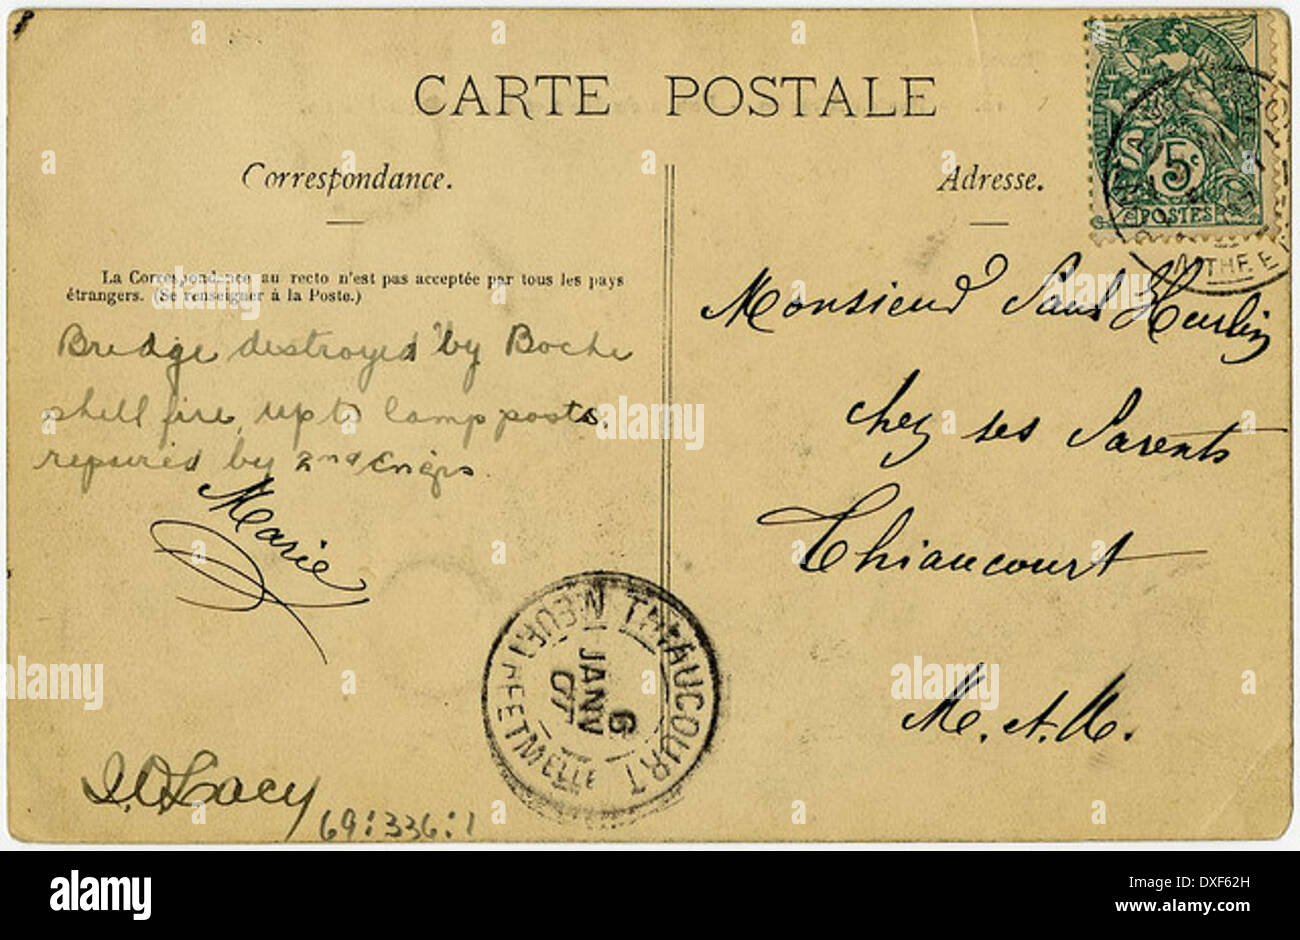 CARTE POSTALE
Correspondance.
Adresse.
La Correspondance au recto n'est pas acceptée par tous les pays
étrangers. (Se renseigner à la Poste.)
Bridge destroyed by Boche
shell fire, up to lamp posts,
repaired by 2nd Engrs.
Marie
Monsieur Paul
chez ses Parents
Thiaucourt
M. et M.
5c
POSTES
THIAUCOURT
MEURTHE ET MOSELLE
6
JANV
07
Lacy
69:336:1
alamy
Image ID: DXF62H
www.alamy.com